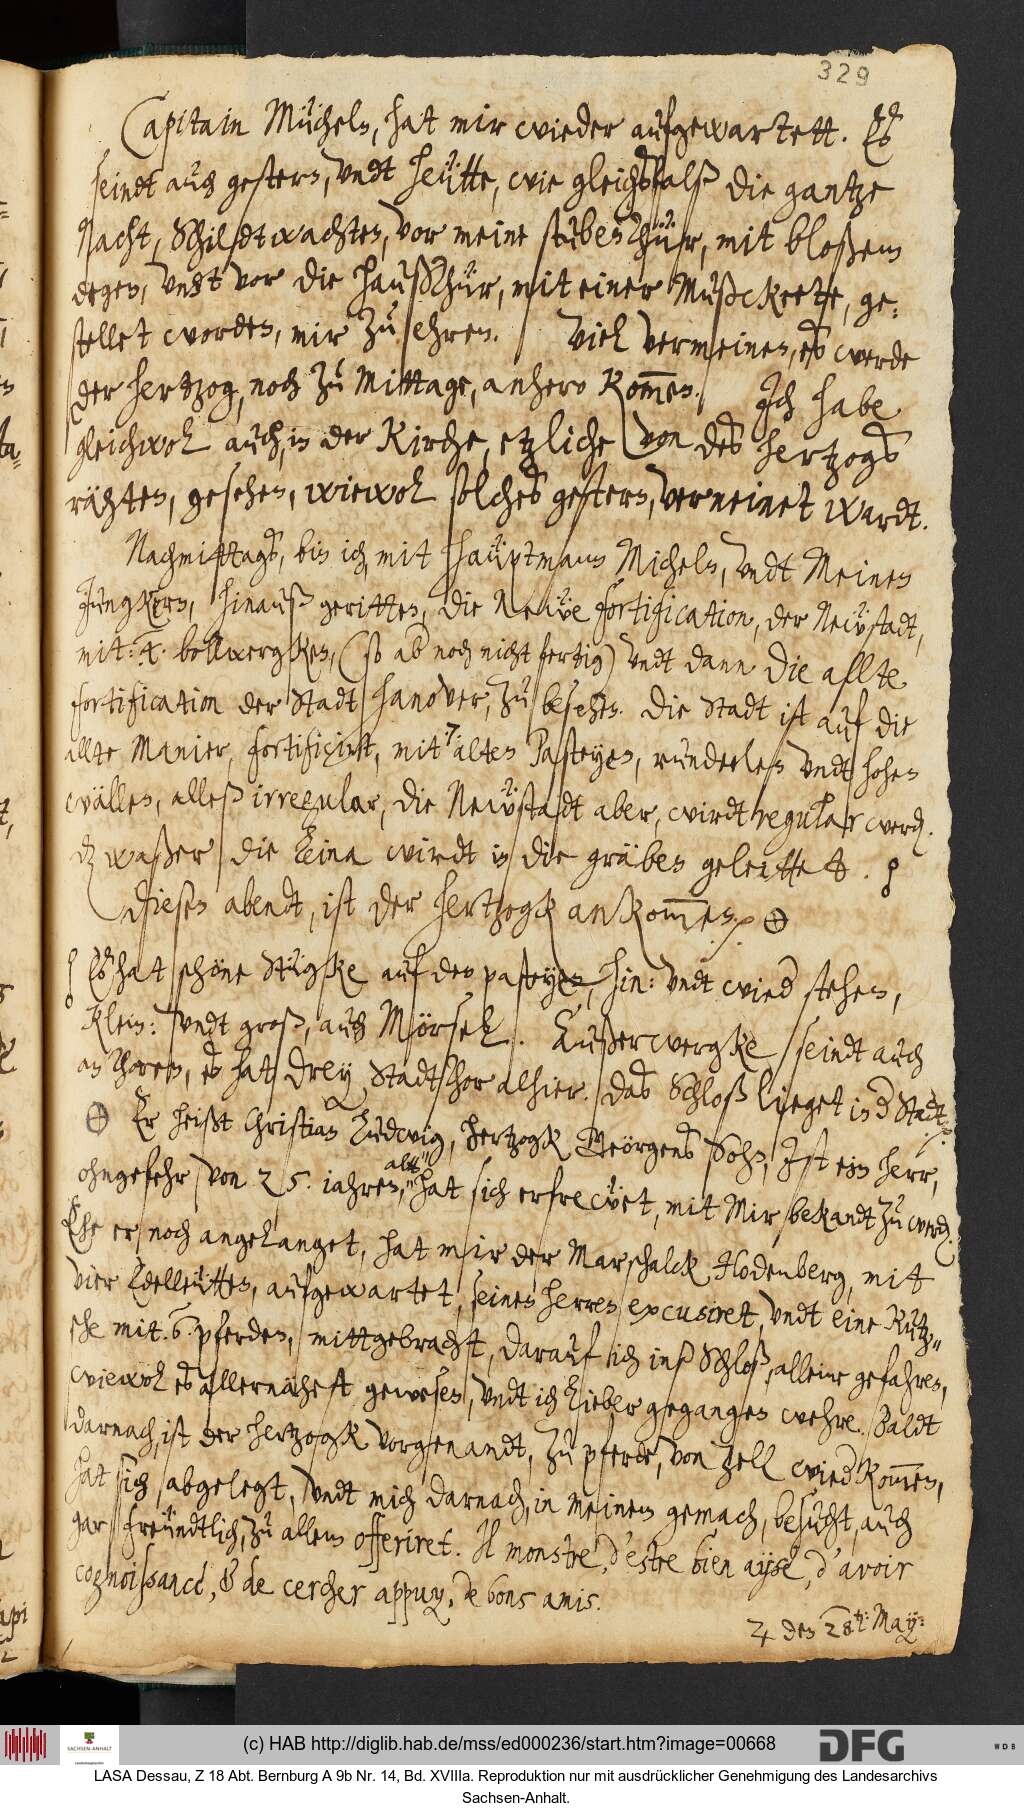 329
Capitain Müchels, hat mir wieder aufgewartett. Es
seindt auch gestern, undt heütte, wie gleichsfalß die gantze
Nacht, Schildtwachten, vor meine stubenthür, mit bloßem
degen, undt vor die haußthür, mit einer Mußckeete, ge:
stellet worden, mir zu ehren. Viel vermeinen, es werde
der Hertzog, noch zu Mittage, anhero kom̅en. Ich habe
gleichwol auch, in der Kirche, etzliche von des Hertzogs
rähten, gesehen, wiewol solches gestern, verneinet wardt.
Nachmittags, bin ich, mit Hauptmann Michels, undt Meinen
Jungkern, hinauß geritten, die Neue fortification, der Neustadt,
mit: 4. bollwergken, (so ab noch nicht fertig) undt dann die allte
fortification der Stadt Hanover, zu besehen. Die Stadt ist auf die
allte Manier, fortificirt, mit 7 alten Pasteyen, rundeelen undt hohen
wällen, alleß irregular, die Neustadt aber, wirdt regular werd.
dz waßer die Leina wirdt in die gräben geleittet.
Diesen abendt, ist der Hertzogk ankom̅en ./. ⊕
Es hat schöne Stügke auf den pasteyen, hin: undt wied stehen,
Klein: undt groß, auch Mörsel. Außerwergke seindt auch
an thoren, es hat drey Stadtthor alhier. Das Schloß lieget in d Stadt.
⊕ Er heißt Christian Ludwig, Hertzogk Geörgens Sohn, Ist ein Herr,
ohngefehr von 25. iahren, hat sich erfrewet, mit Mir bekandt zu werd.
alt"
Ehe er noch angelanget, hat mir der Marschalck Hodenberg, mit
vier Edelleütten, aufgewartet, seinen herren excusiret, undt eine Kutz-
sche mit. 6. pferden, mittgebracht, darauf ich inß Schloß, alleine gefahren,
wiewol es allernächst gewesen, undt ich lieber gegangen wehre. Baldt
darnach, ist der Hertzogk vorgenandt, zu pferde, von Zell wied kom̅en,
hat sich abgelegt, undt mich darnach, in meinem gemach, besucht, auch
gar freündtlich, zu allem offeriret. Il monstre, d'estre bien ayse, d'avoir
cognoissance, & de cercher appuy, de bons amis.
♃ den 28t: May:
(c) HAB http://diglib.hab.de/mss/ed000236/start.htm?image=00668
SACHSEN-ANHALT
DFG
WDB
LASA Dessau, Z 18 Abt. Bernburg A 9b Nr. 14, Bd. XVIIIa. Reproduktion nur mit ausdrücklicher Genehmigung des Landesarchivs
Sachsen-Anhalt.